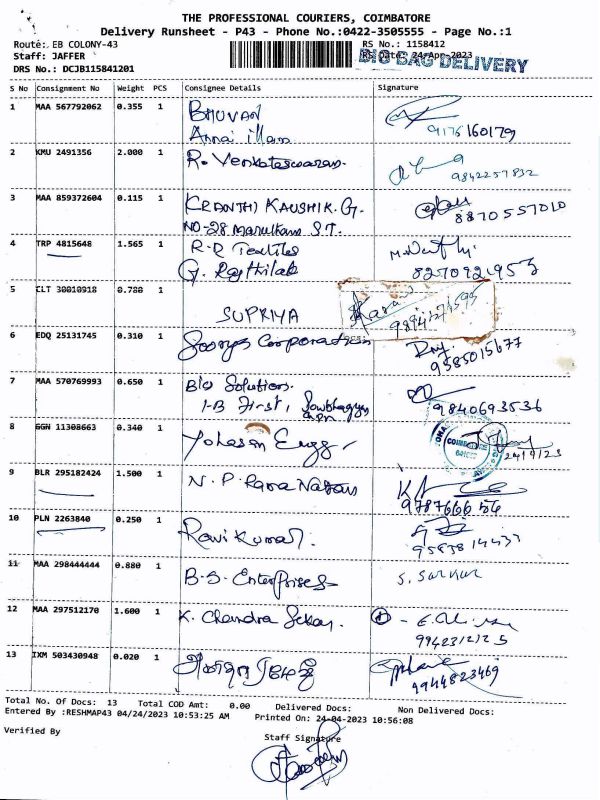 THE PROFESSIONAL COURIERS, COIMBATORE
Delivery Runsheet - P43 - Phone No.:0422-3505555 - Page No.:1
Route: EB COLONY-43 RS No.: 1158412
Staff: JAFFER RS Date: 24-Apr-2023
BIG BAG DELIVERY
DRS No.: DCJB115841201
S No Consignment No Weight PCS Consignee Details Signature
1 MAA 567792062 0.355 1 BHUVAN
Annai illam 9176160179
2 KMU 2491356 2.000 1 R. Venkateswaran.
9842257832
3 MAA 859372604 0.115 1 KRANTHI KAUSHIK. G.
NO-28 Marutham ST. 8870557010
4 TRP 4815648 1.565 1 R.R Textiles
G. Rajthilak
5 CLT 30010918 0.780 1 SUPRIYA
6 EDQ 25131745 0.310 1 Soorya Corporation
9585015677
7 MAA 570769993 0.650 1 Bio Solutions.
1-B First, 9840693536
8 GGN 11308663 0.340 1 Yohesan Engg
COIMBATORE
24/4/23
9 BLR 295182424 1.500 1 N. P
9787666656
10 PLN 2263840 0.250 1 Ravi Kumar.
11 MAA 298444444 0.880 1 B.S. Enterprises S. Sankar
12 MAA 297512170 1.600 1 K. Chandra Sekar.
9942312125
13 IXM 503430948 0.020 1
9944823469
Total No. Of Docs: 13 Total COD Amt: 0.00 Delivered Docs: Non Delivered Docs:
Entered By :RESHMAP43 04/24/2023 10:53:25 AM Printed On: 24-04-2023 10:56:08
Verified By Staff Signature